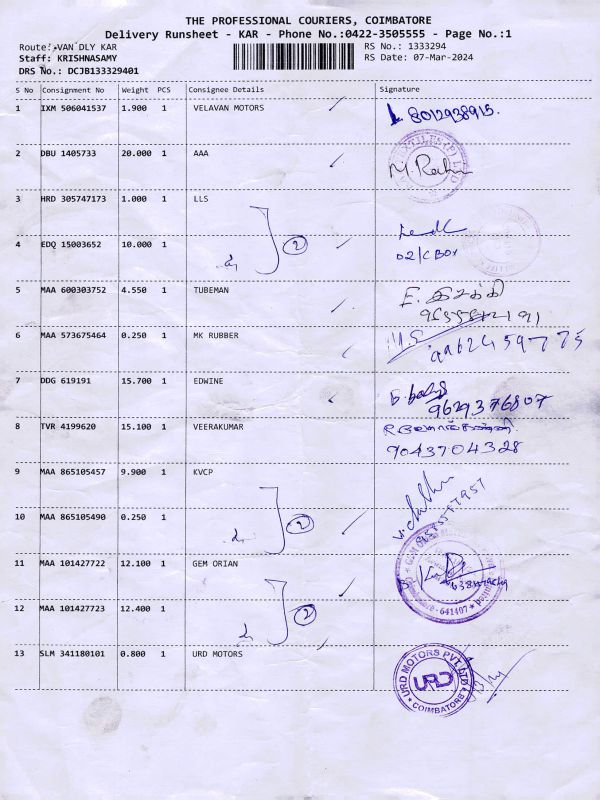 THE PROFESSIONAL COURIERS, COIMBATORE
Delivery Runsheet - KAR - Phone No.:0422-3505555 - Page No.:1
Route: VAN DLY KAR RS No.: 1333294
Staff: KRISHNASAMY RS Date: 07-Mar-2024
DRS No.: DCJB133329401
S No Consignment No Weight PCS Consignee Details Signature
1 IXM 506041537 1.900 1 VELAVAN MOTORS 8012938915.
2 DBU 1405733 20.000 1 AAA M. Rahu
3 HRD 305747173 1.000 1 LLS
2
4 EDQ 15003652 10.000 1 02/CBOY
5 MAA 600303752 4.550 1 TUBEMAN E. இசக்கி
6 MAA 573675464 0.250 1 MK RUBBER 9962459775
7 DDG 619191 15.700 1 EDWINE
9629376807
8 TVR 4199620 15.100 1 VEERAKUMAR
9043704328
9 MAA 865105457 9.900 1 KVCP
10 MAA 865105490 0.250 1 2
11 MAA 101427722 12.100 1 GEM ORIAN
641407
12 MAA 101427723 12.400 1 2
13 SLM 341180101 0.800 1 URD MOTORS
URD MOTORS PVT LTD
URD
COIMBATORE